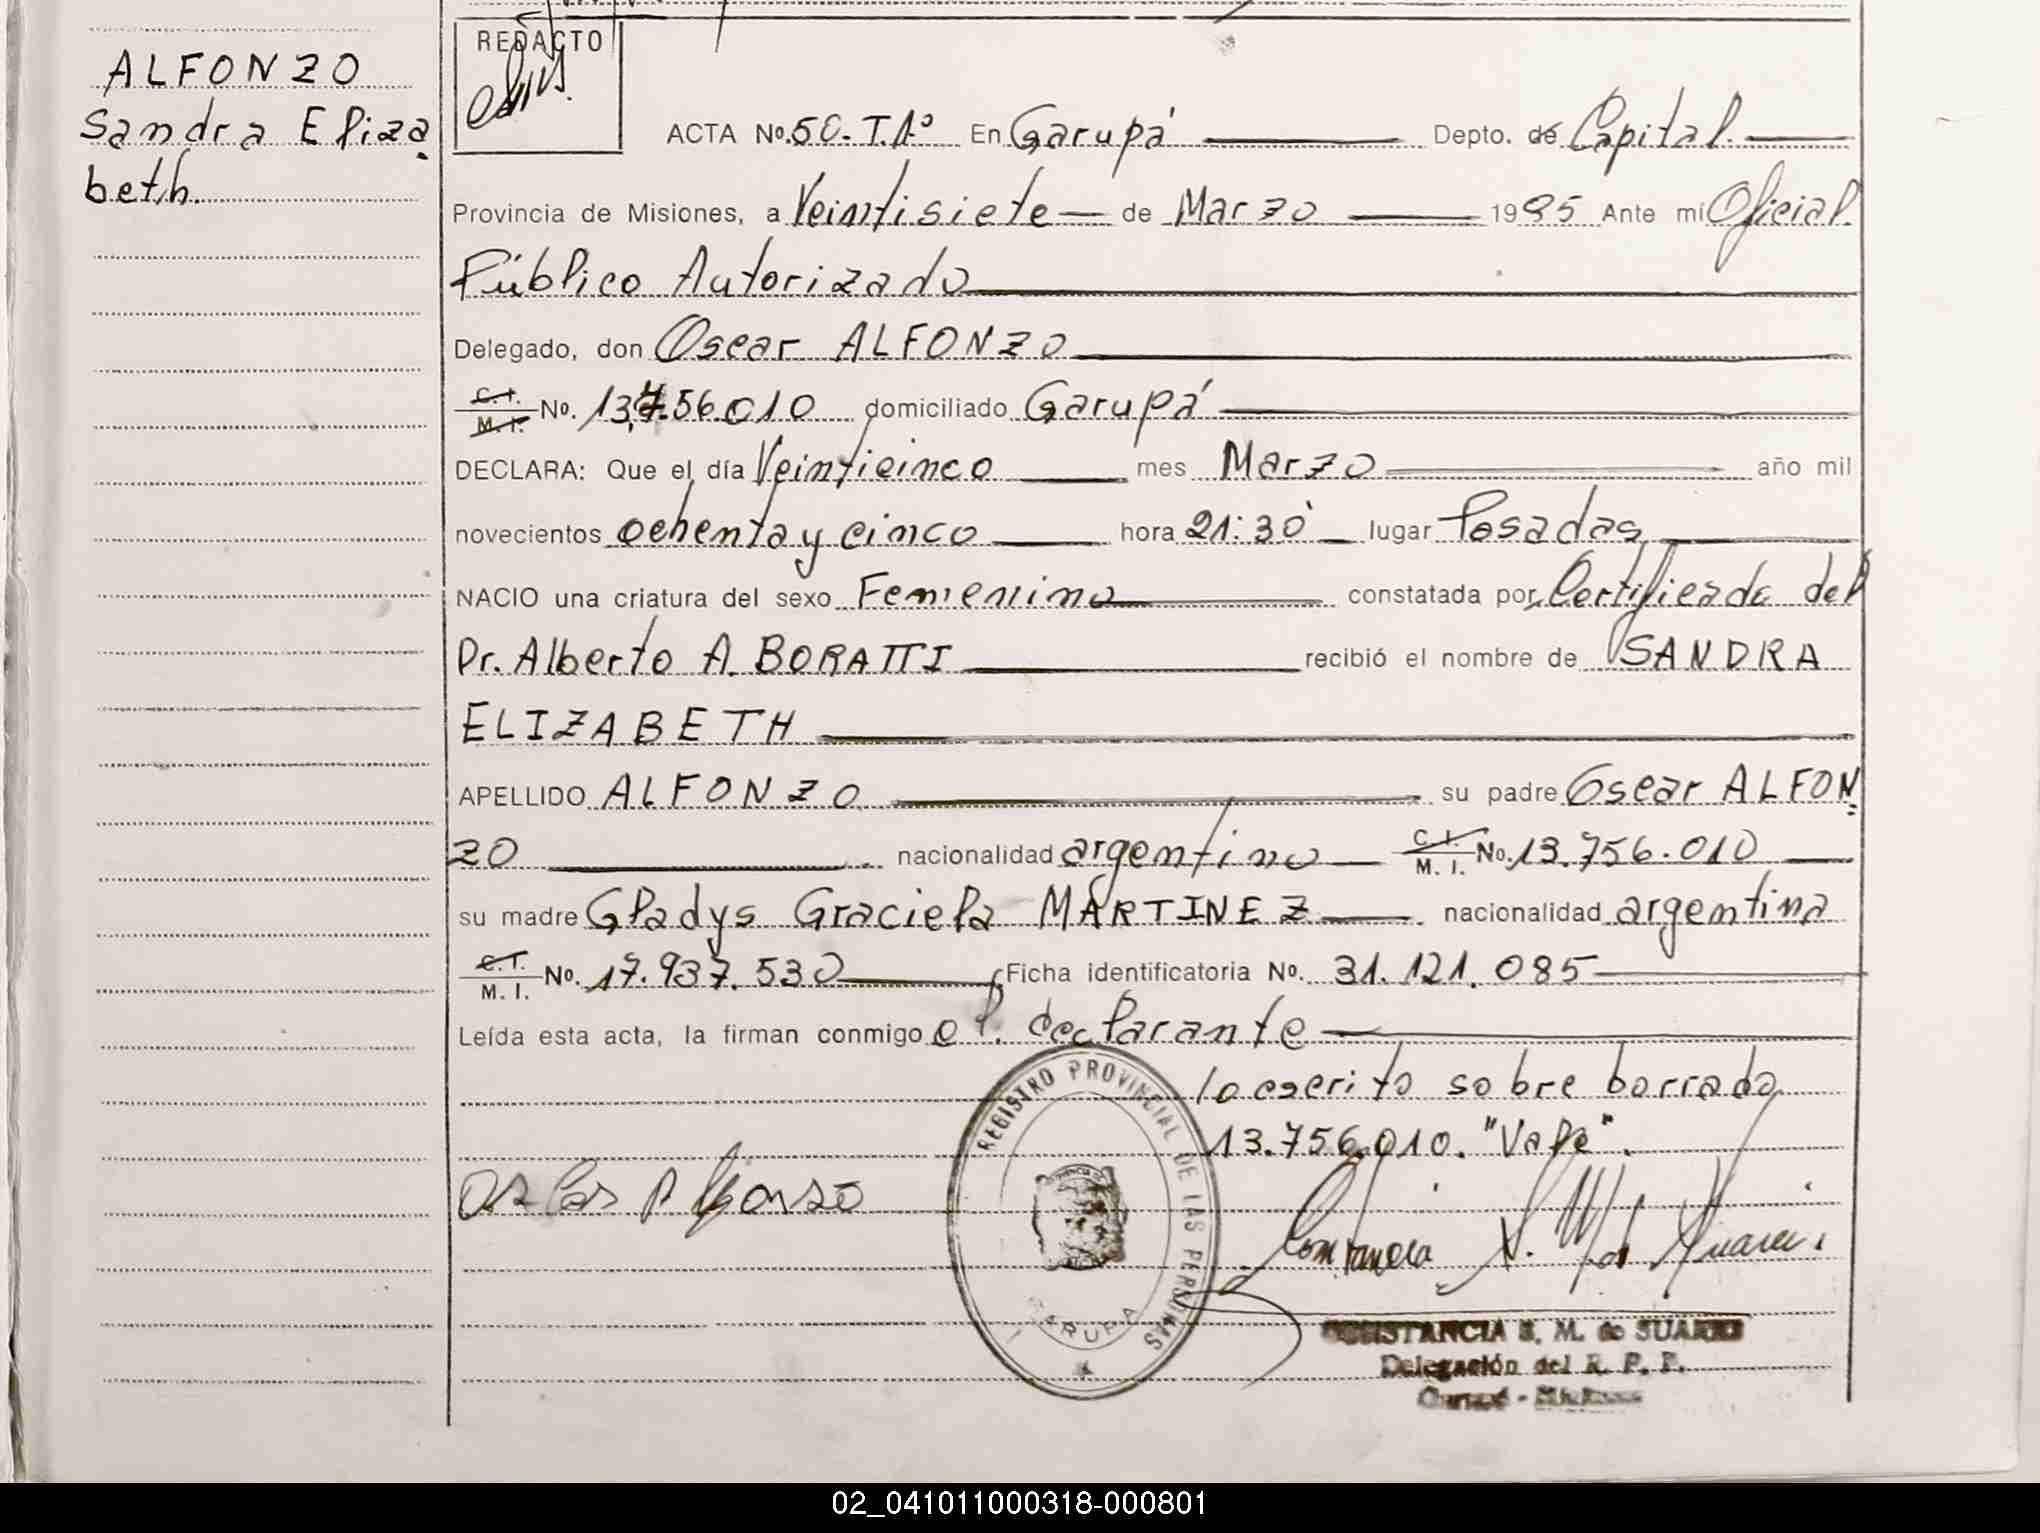 ALFONZO
Sandra Eliza
beth.
REDACTO
ACTA No. 50. T.1º En Garupá Depto. de Capital.
Provincia de Misiones, a Veintisiete de Marzo 1985 Ante mí Oficial
Público Autorizado
Delegado, don Oscar ALFONZO
C. I. M. I. No. 13.756.010 domiciliado Garupá
DECLARA: Que el día Veinticinco mes Marzo año mil
novecientos ochenta y cinco hora 21:30 lugar Posadas
NACIO una criatura del sexo Femenino constatada por Certificado del
Dr. Alberto A. BORATTI recibió el nombre de SANDRA
ELIZABETH
APELLIDO ALFONZO su padre Oscar ALFON
ZO nacionalidad argentino C. I. M. I. No. 13.756.010
su madre Gladys Graciela MARTINEZ nacionalidad argentina
C. I. M. I. No. 17.937.530 Ficha identificatoria No. 31.121.085
Leída esta acta, la firman conmigo el declarante
lo escrito sobre borrado
13.756.010. "Vale".
REGISTRO PROVINCIAL DE LAS PERSONAS
GARUPA
CONSTANCIA S. M. de SUAREZ
Delegación del R. P. P.
Garupá - Misiones
02_041011000318-000801